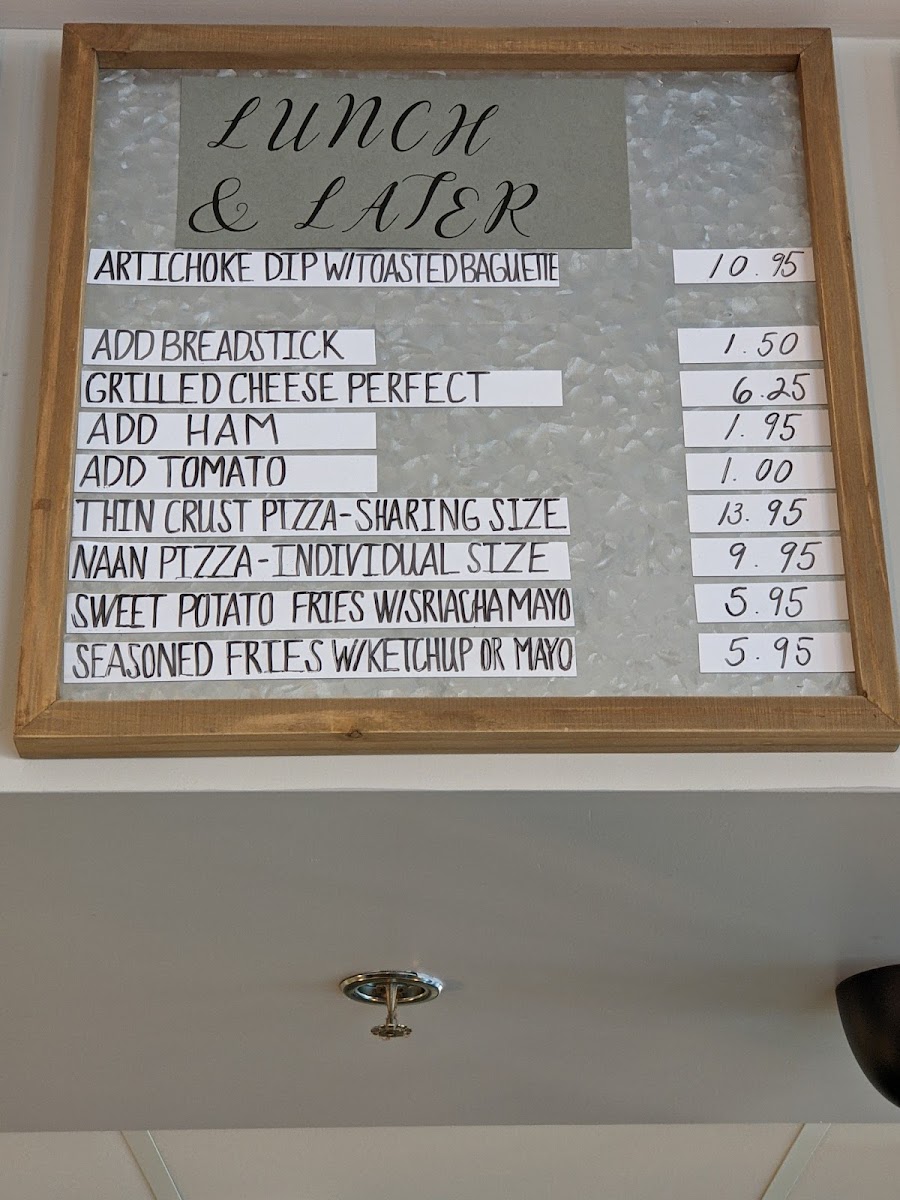 LUNCH
& LATER
ARTICHOKE DIP W/TOASTED BAGUETTE 10.95
ADD BREADSTICK 1.50
GRILLED CHEESE PERFECT 6.25
ADD HAM 1.95
ADD TOMATO 1.00
THIN CRUST PIZZA-SHARING SIZE 13.95
NAAN PIZZA-INDIVIDUAL SIZE 9.95
SWEET POTATO FRIES W/SRIACHA MAYO 5.95
SEASONED FRIES W/KETCHUP OR MAYO 5.95